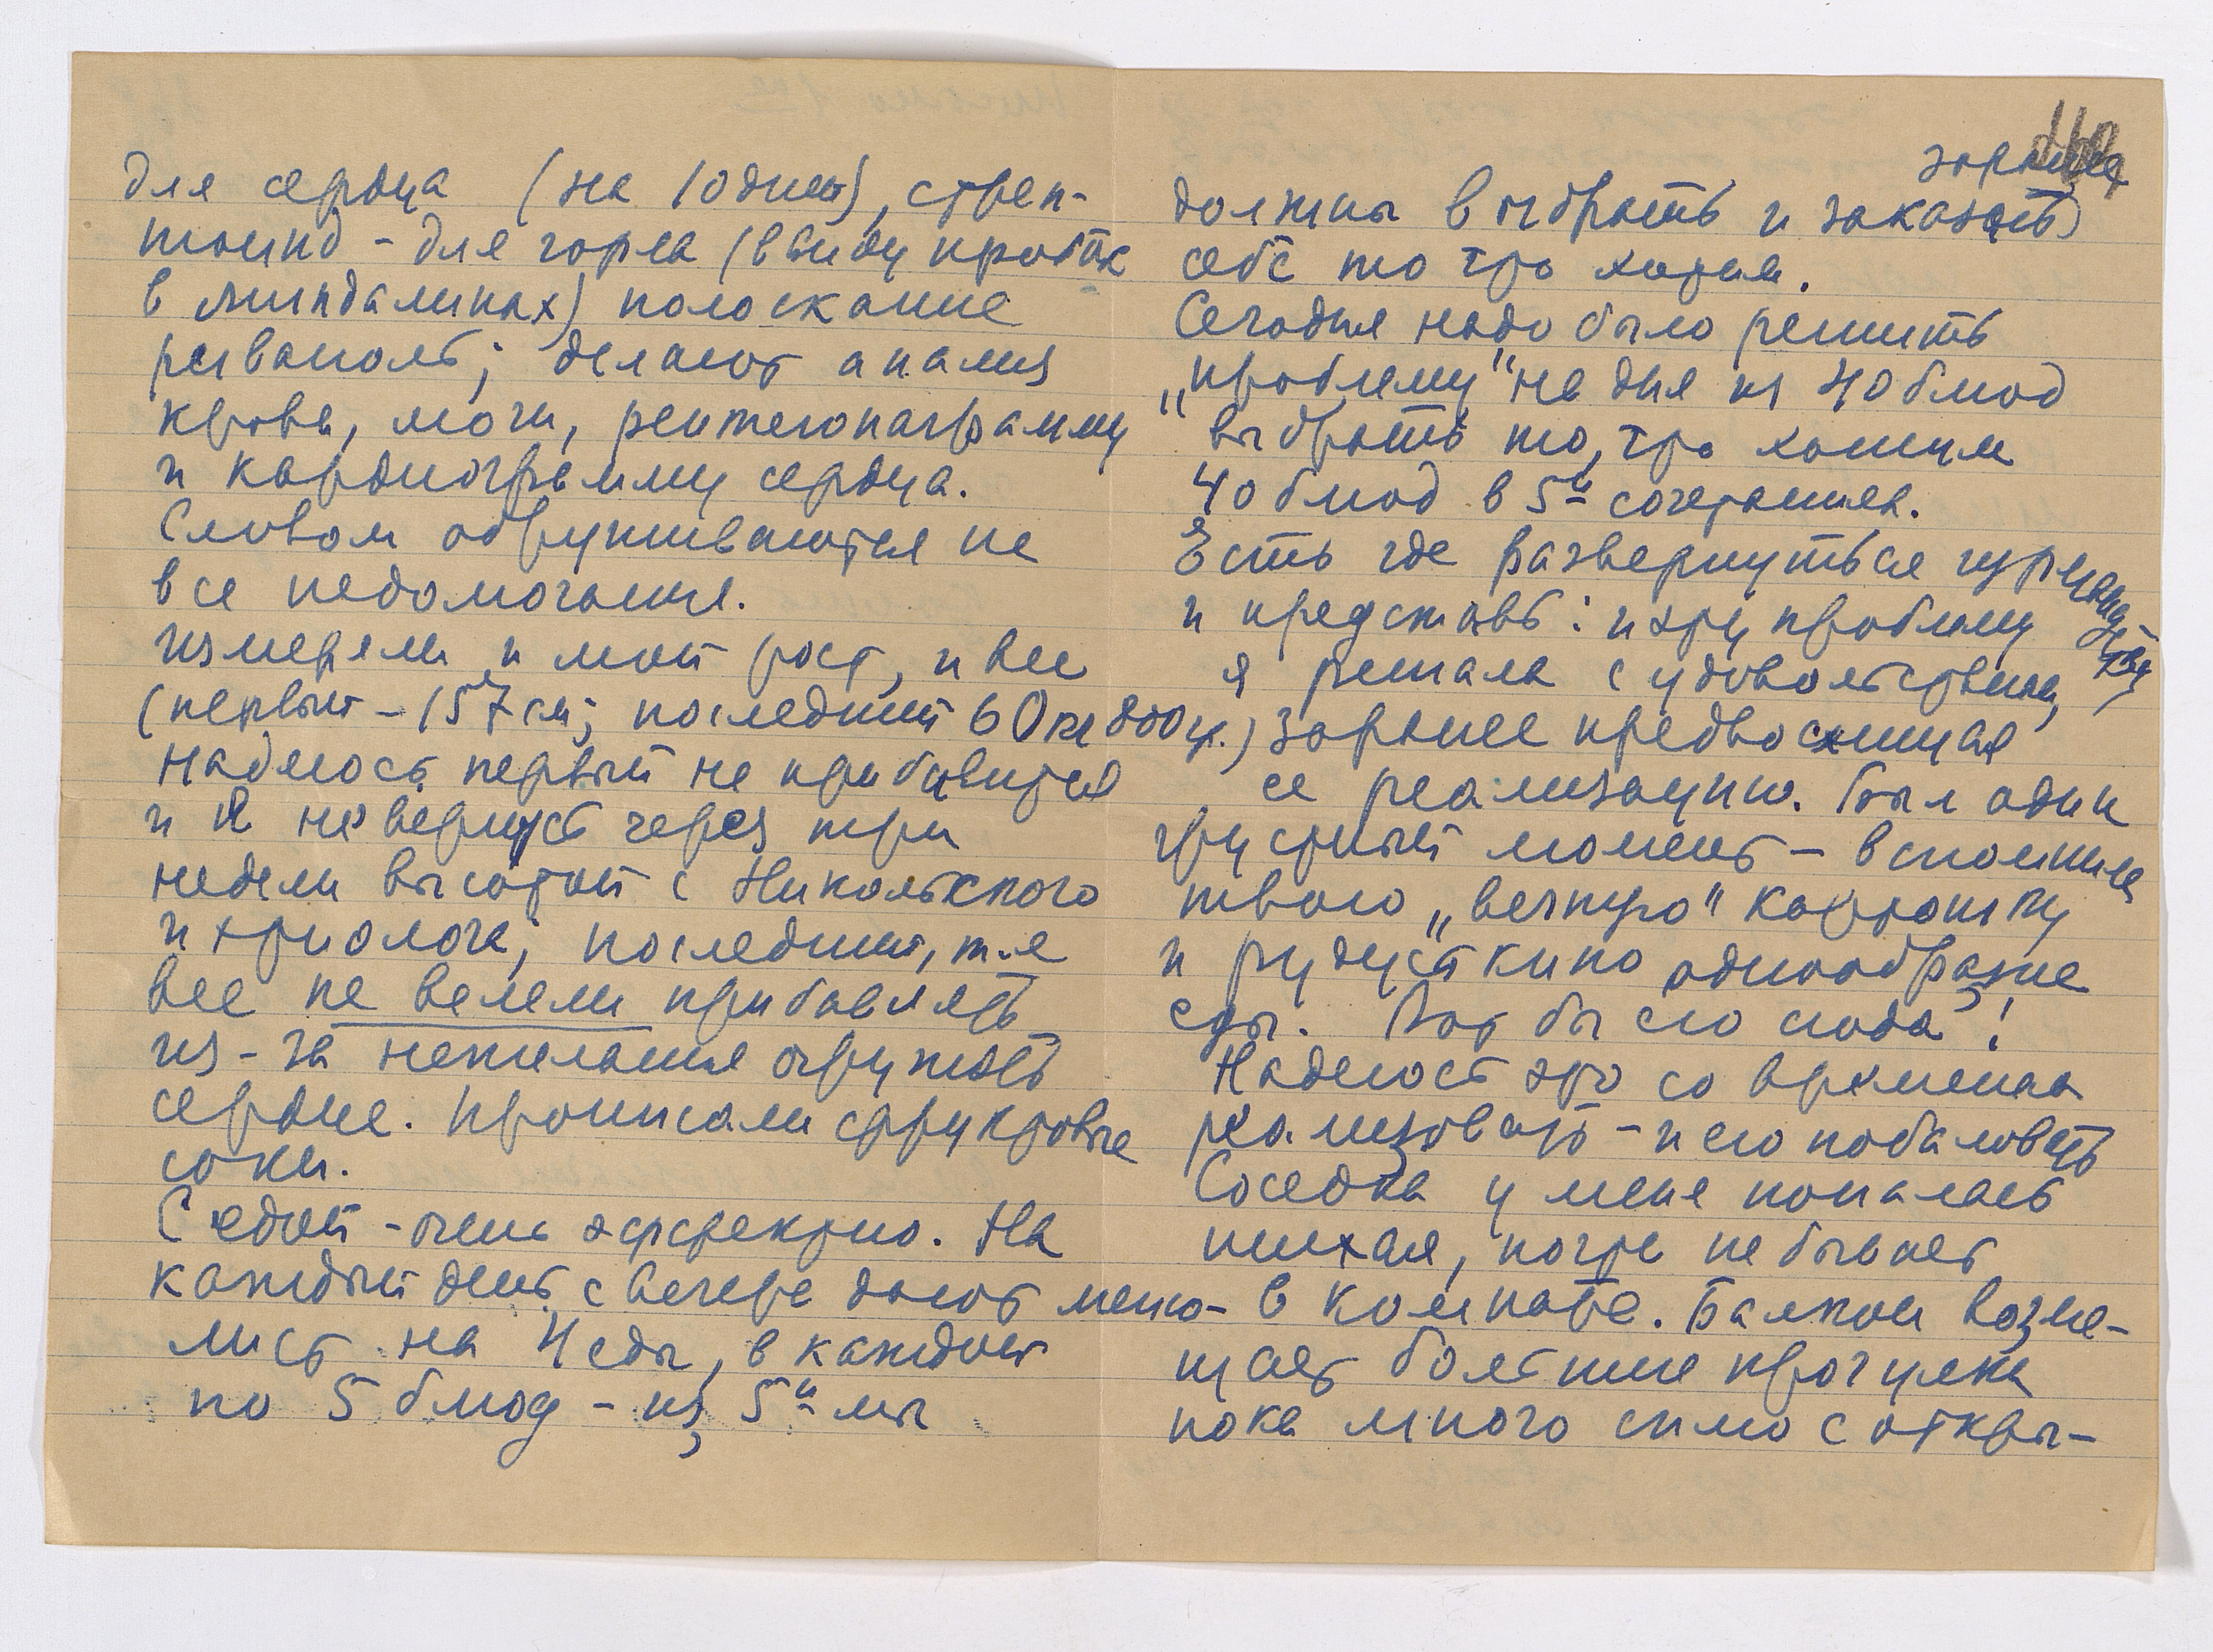 для сердца (на 10 дней), стреп-
тоцид - для горла (ввиду пробок
в миндалинах) полоскание
риванолъ; делают анализ
крови, мочи, рентгенограмму
и кардиограмму сердца.
Словом обруживаются не
все недомогания.
Измеряли и мой рост, и вес
(первый - 157 см; последний 60 кг 800 гр.)
Надеюсь первый не прибавится
и я не вернусь через три
недели высотой с Никольского
последний, т.е
вес не велели прибавлять
из-за нежелания огружать
сердце. Прописали фруктовые
соки.
С едой - очень эффектно. На
каждый день с вечера дают меню-
лист на 4 еды, в каждой
по 5 блюд - из 5и мы
заранее
должны выбрать и заказать
себе то что хотим.
Сегодня надо было решить
„проблему" на дня из 40 блюд
выбрать то, что хотим
40 блюд в 5и сочетаниях.
Есть где развернуться
и представь: и эту проблему
я решала с удовольствием,
заранее предвосхищая
ее реализацию. Был один
грустный момент - вспомнила
твою „вечную" картошку
и однообразие
еды. Вот бы его сюда!
Надеюсь это со временем
реализовать - и его побаловать
Соседка у меня попалась
тихая, почти не бывает
в комнате. Балкон возме-
щает большие прогулки
пока много сплю с откры-